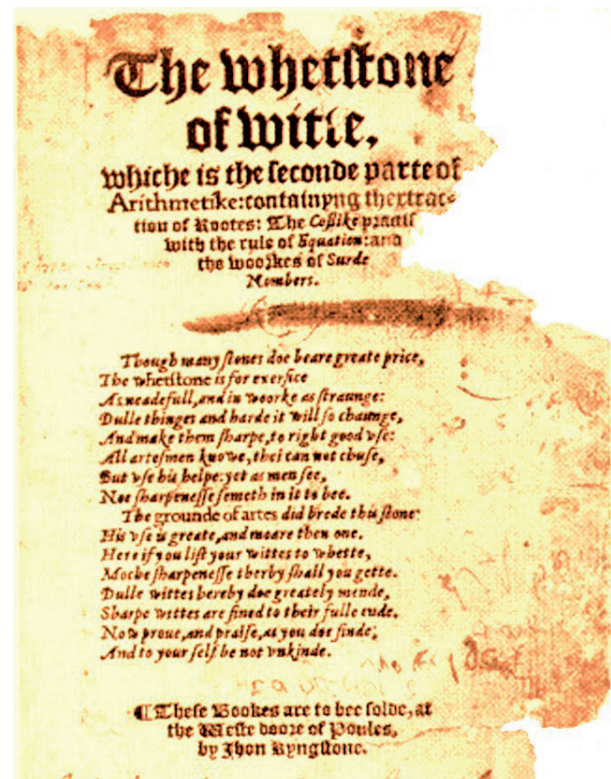 The whetstone
of witte,
whiche is the seconde parte of
Arithmetike: containyng thextrac-
tion of Rootes: The Coßike practise
with the rule of Equation: and
the woorkes of Surde
Nombers.
Though many stones doe beare greate price,
The whetstone is for exersice
As neadefull, and in woorke as straunge:
Dulle thinges and harde it will so chaunge,
And make them sharpe, to right good vse:
All artesmen knowe, thei can not chuse,
But vse his helpe: yet as men see,
Noe sharpenesse semeth in it to bee.
The grounde of artes did brede this stone:
His vse is greate, and moare then one.
Here if you lift your wittes to whette,
Moche sharpenesse therby shall you gette.
Dulle wittes hereby doe greately mende,
Sharpe wittes are fined to their fulle ende.
Now proue, and praise, as you doe finde,
And to your self be not vnkinde.
¶ These Bookes are to bee solde, at
the Weste doore of Poules,
by Jhon Kyngstone.